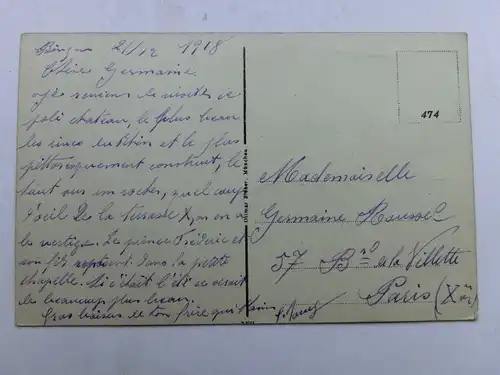 Bingen 21/12 1918
Chère Germaine.
Je reviens de visiter ce
joli chateau, le plus beau
les sires et le plus
pittoresquement construit, le
haut sur un rocher, quel coup
d'oeil De la terrasse X, on en a
le vertige. Le prince Frédéric et
son fils reposent dans la petite
chapelle. Si c'était l'été ce serait
beaucoup plus beau.
Gros baisers de ton frère qui t'aime
474
Ottmar Zieher, München
Mademoiselle
Germaine Roussel
57 Bd de la Villette
Paris (Xe)